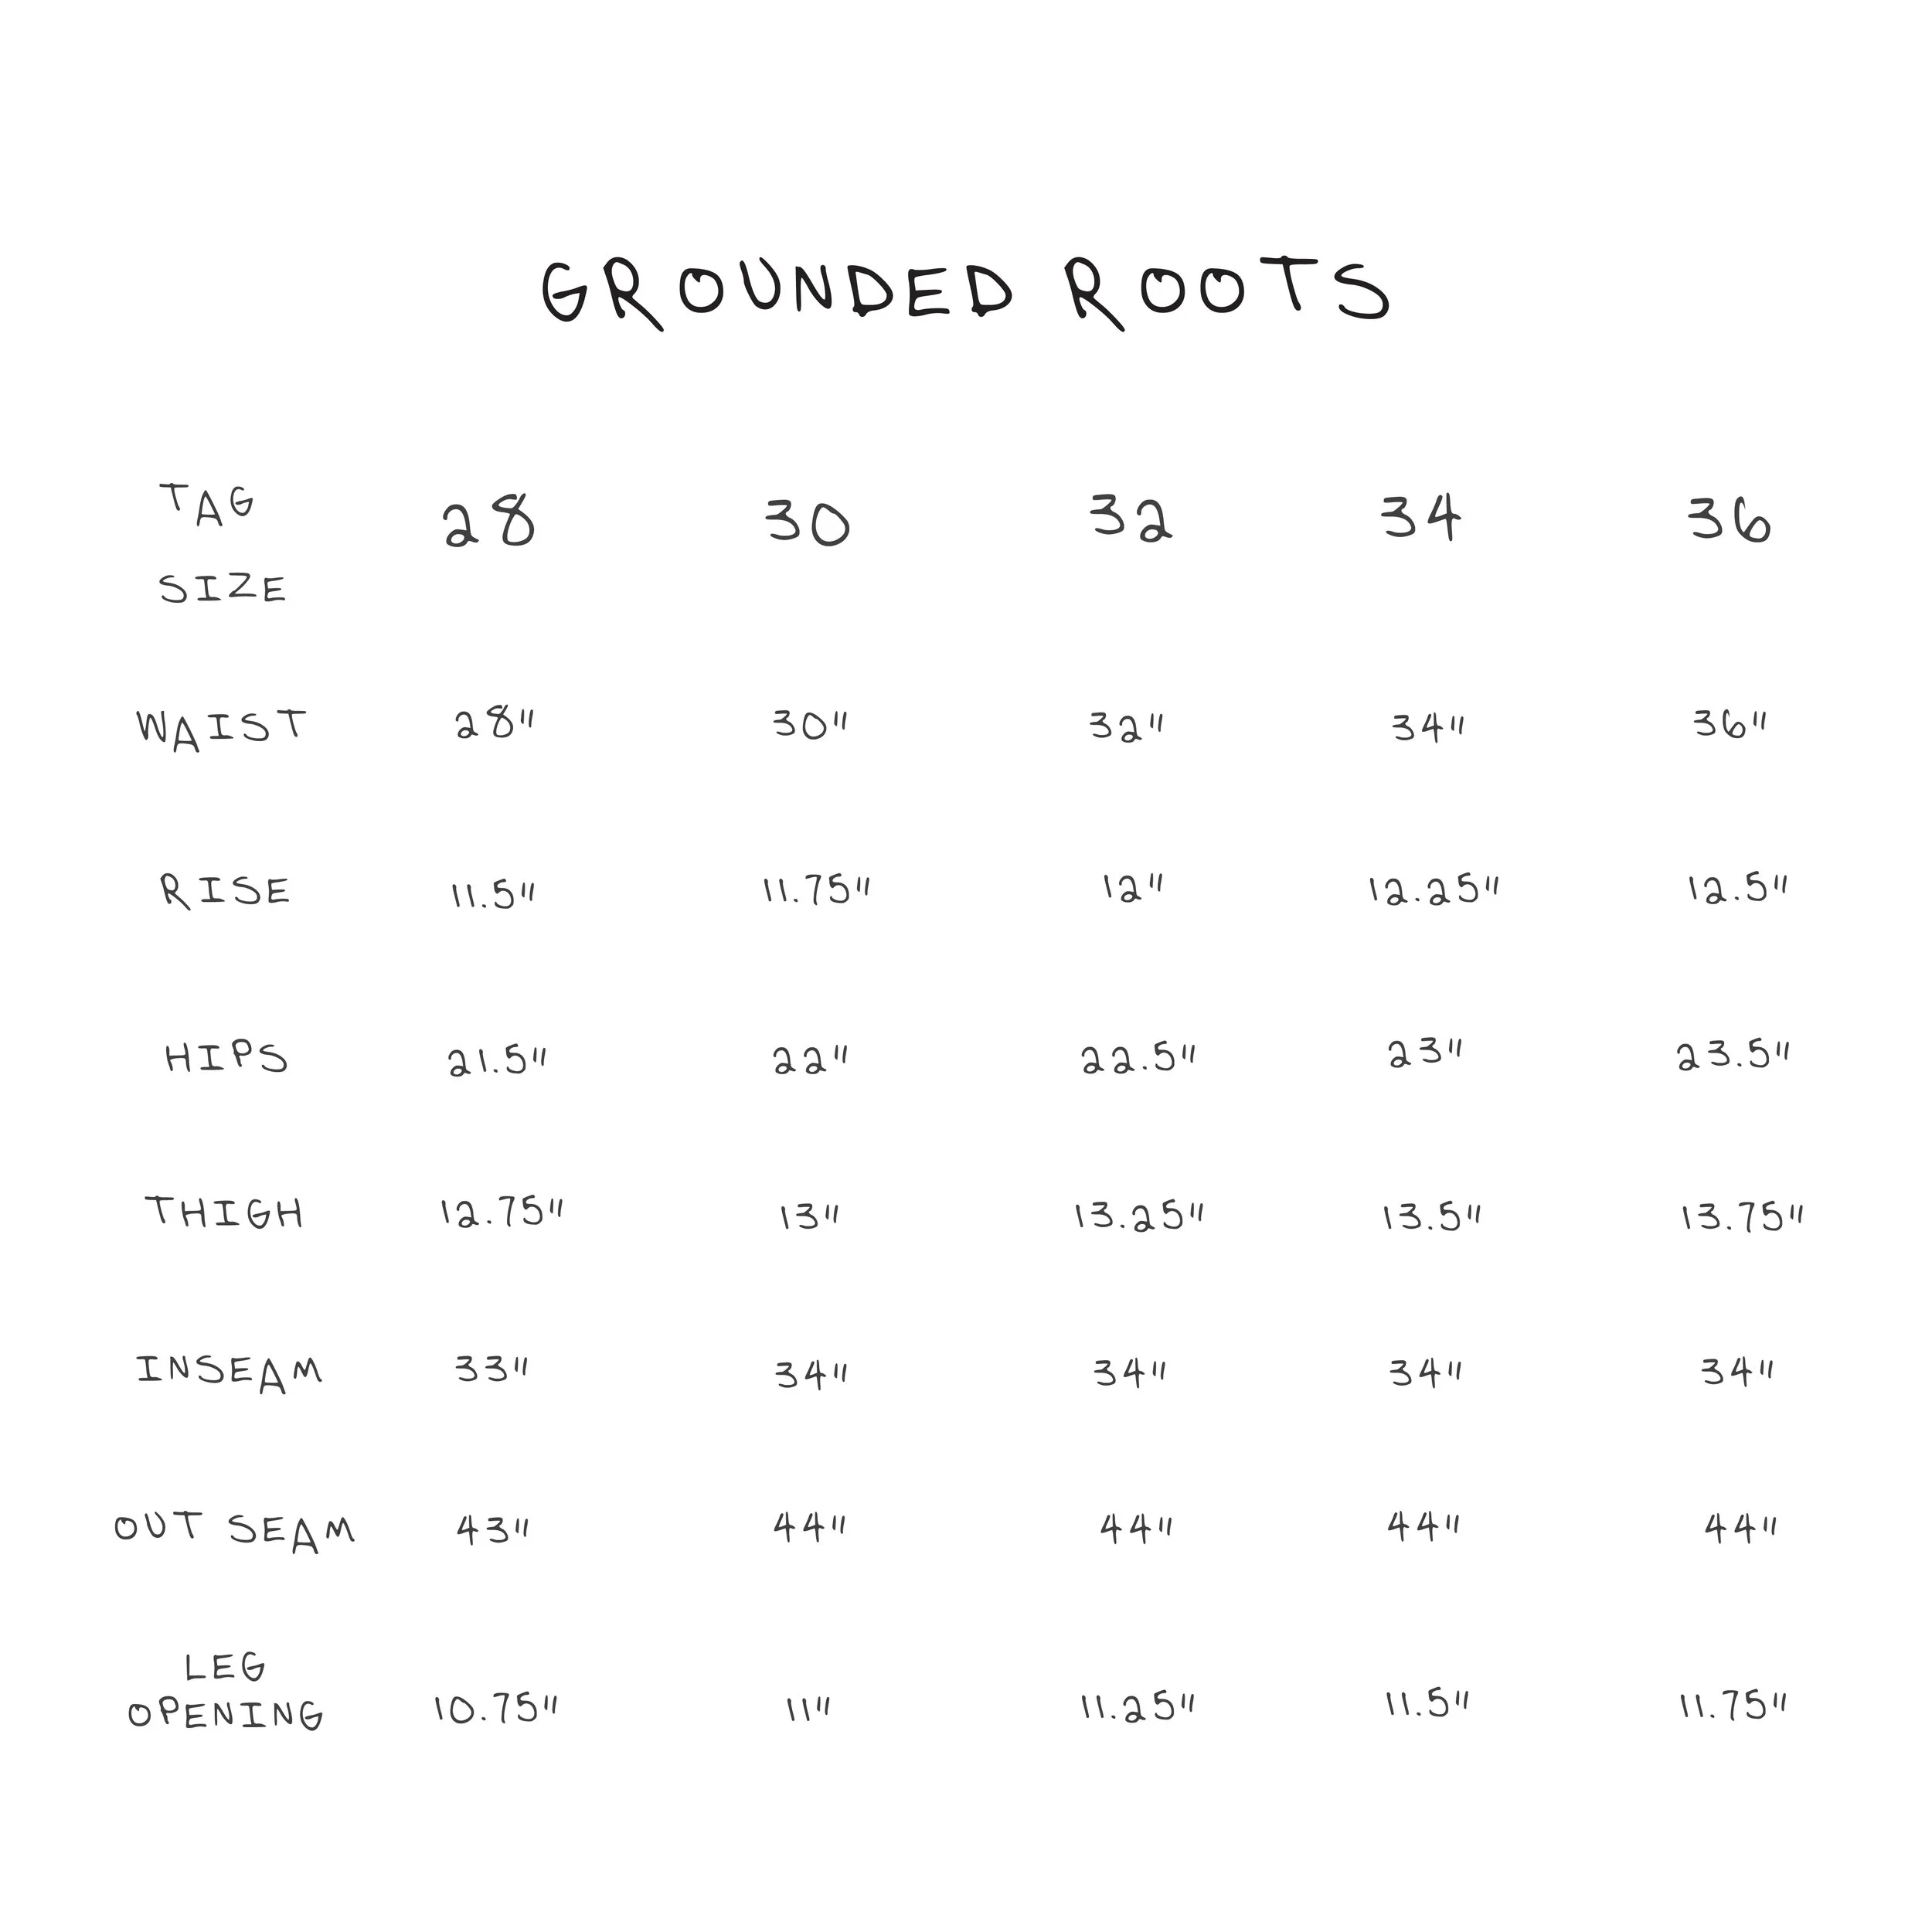 GROUNDED ROOTS
TAG SIZE 28 30 32 34 36
WAIST 28" 30" 32" 34" 36"
RISE 11.5" 11.75" 12" 12.25" 12.5"
HIPS 21.5" 22" 22.5" 23" 23.5"
THIGH 12.75" 13" 13.25" 13.5" 13.75"
INSEAM 33" 34" 34" 34" 34"
OUT SEAM 43" 44" 44" 44" 44"
LEG OPENING 10.75" 11" 11.25" 11.5" 11.75"